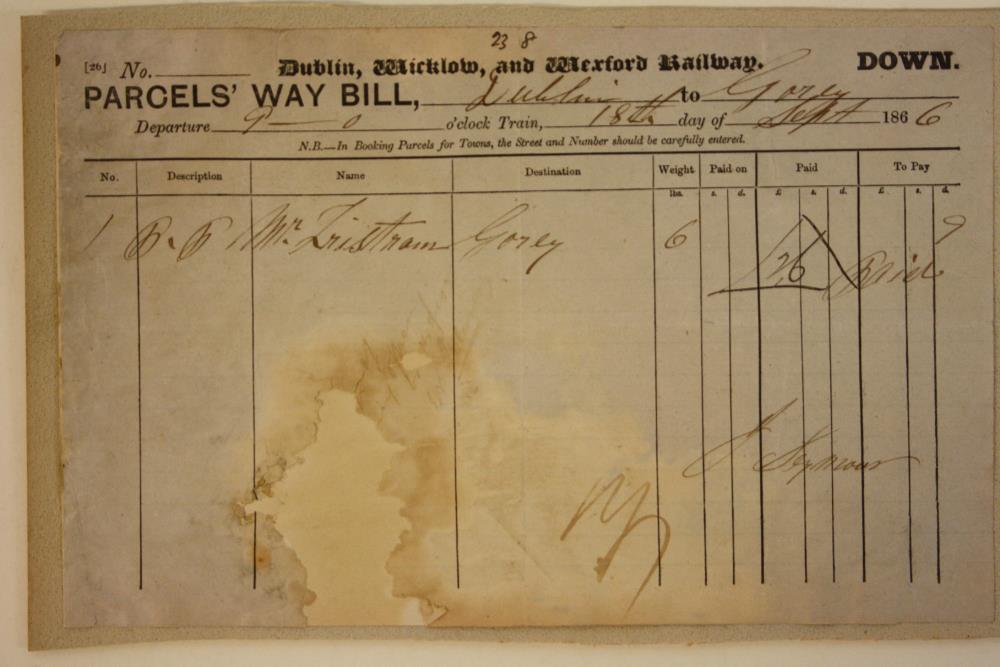 23 8
[26] No. Dublin, Wicklow, and Wexford Railway. DOWN.
PARCELS' WAY BILL, Dublin to Gorey
Departure 9 — 0 o'clock Train, 18th day of Sept 1866
N.B.—In Booking Parcels for Towns, the Street and Number should be carefully entered.
No. Description Name Destination Weight Paid on Paid To Pay
lbs. s. d. £ s. d. £ s. d.
1 P. P Mr. Tristram Gorey 6 9
26 Paid
J Seymour